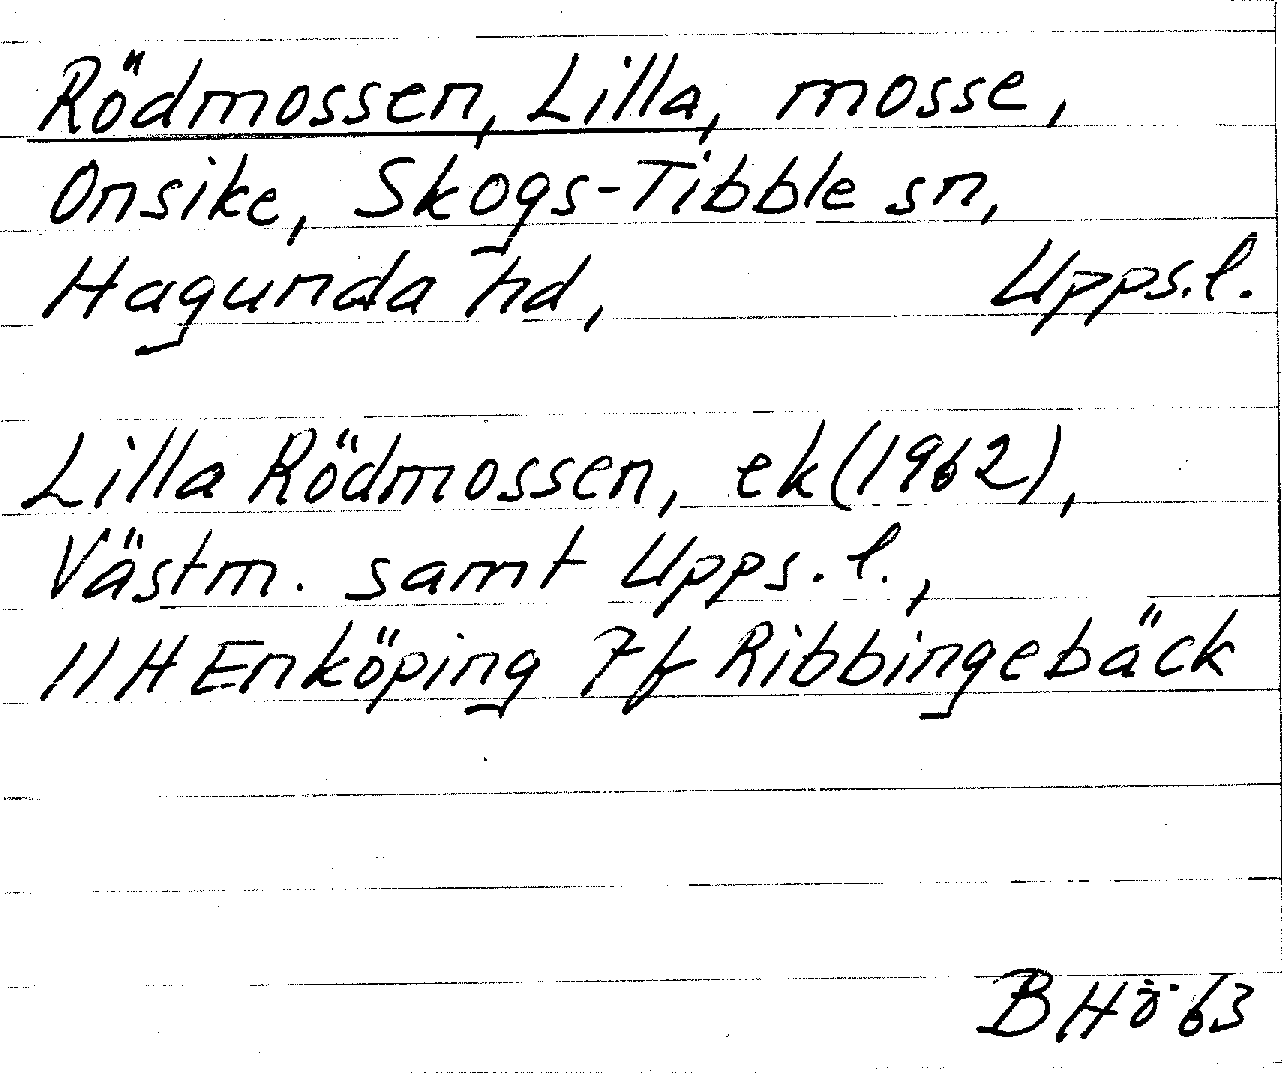 Rödmossen, Lilla, mosse,
Onsike, Skogs-Tibble sn,
Hagunda hd, Upps.l.
Lilla Rödmossen, ek (1962),
Västm. samt Upps.l.,
11H Enköping 7f Ribbingebäck
B Hö 63